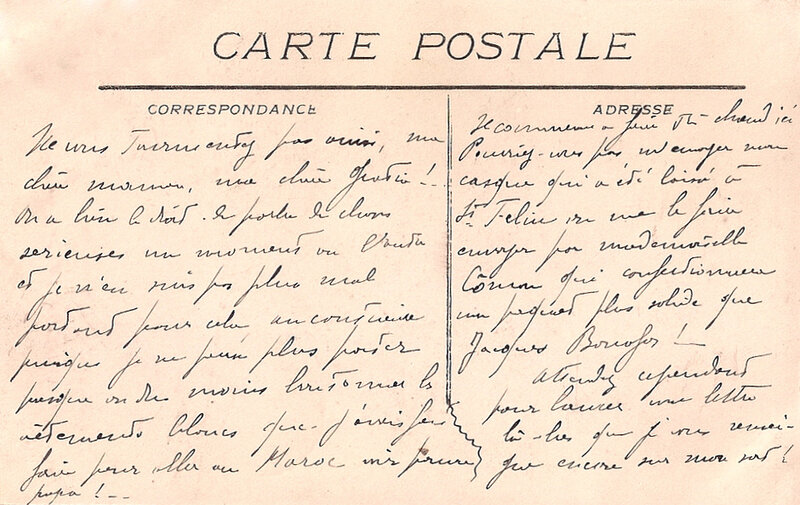 CARTE POSTALE
CORRESPONDANCE
Ne vous Tourmentez pas ainsi, ma
chère maman, ma chère !..
on a bien le droit de parler de choses
serieuses un moment ou
et je n'en suis pas plus mal
portant pour cela au contraire
puisque je ne peux plus porter
presque ou du moins les
vêtements blancs que j'avais fait
faire pour aller au Maroc
papa ! --
ADRESSE
Il commence à faire très chaud ici
Pourriez-vous pas m'envoyer mon
casque qui a été laissé à
St Feliu ou me le faire
envoyer par mademoiselle
Cômon qui confectionnera
un paquet plus solide que
Jacques !
Attendez cependant
pour une lettre
là-bas que je vous rensei-
gne encore sur mon sort !